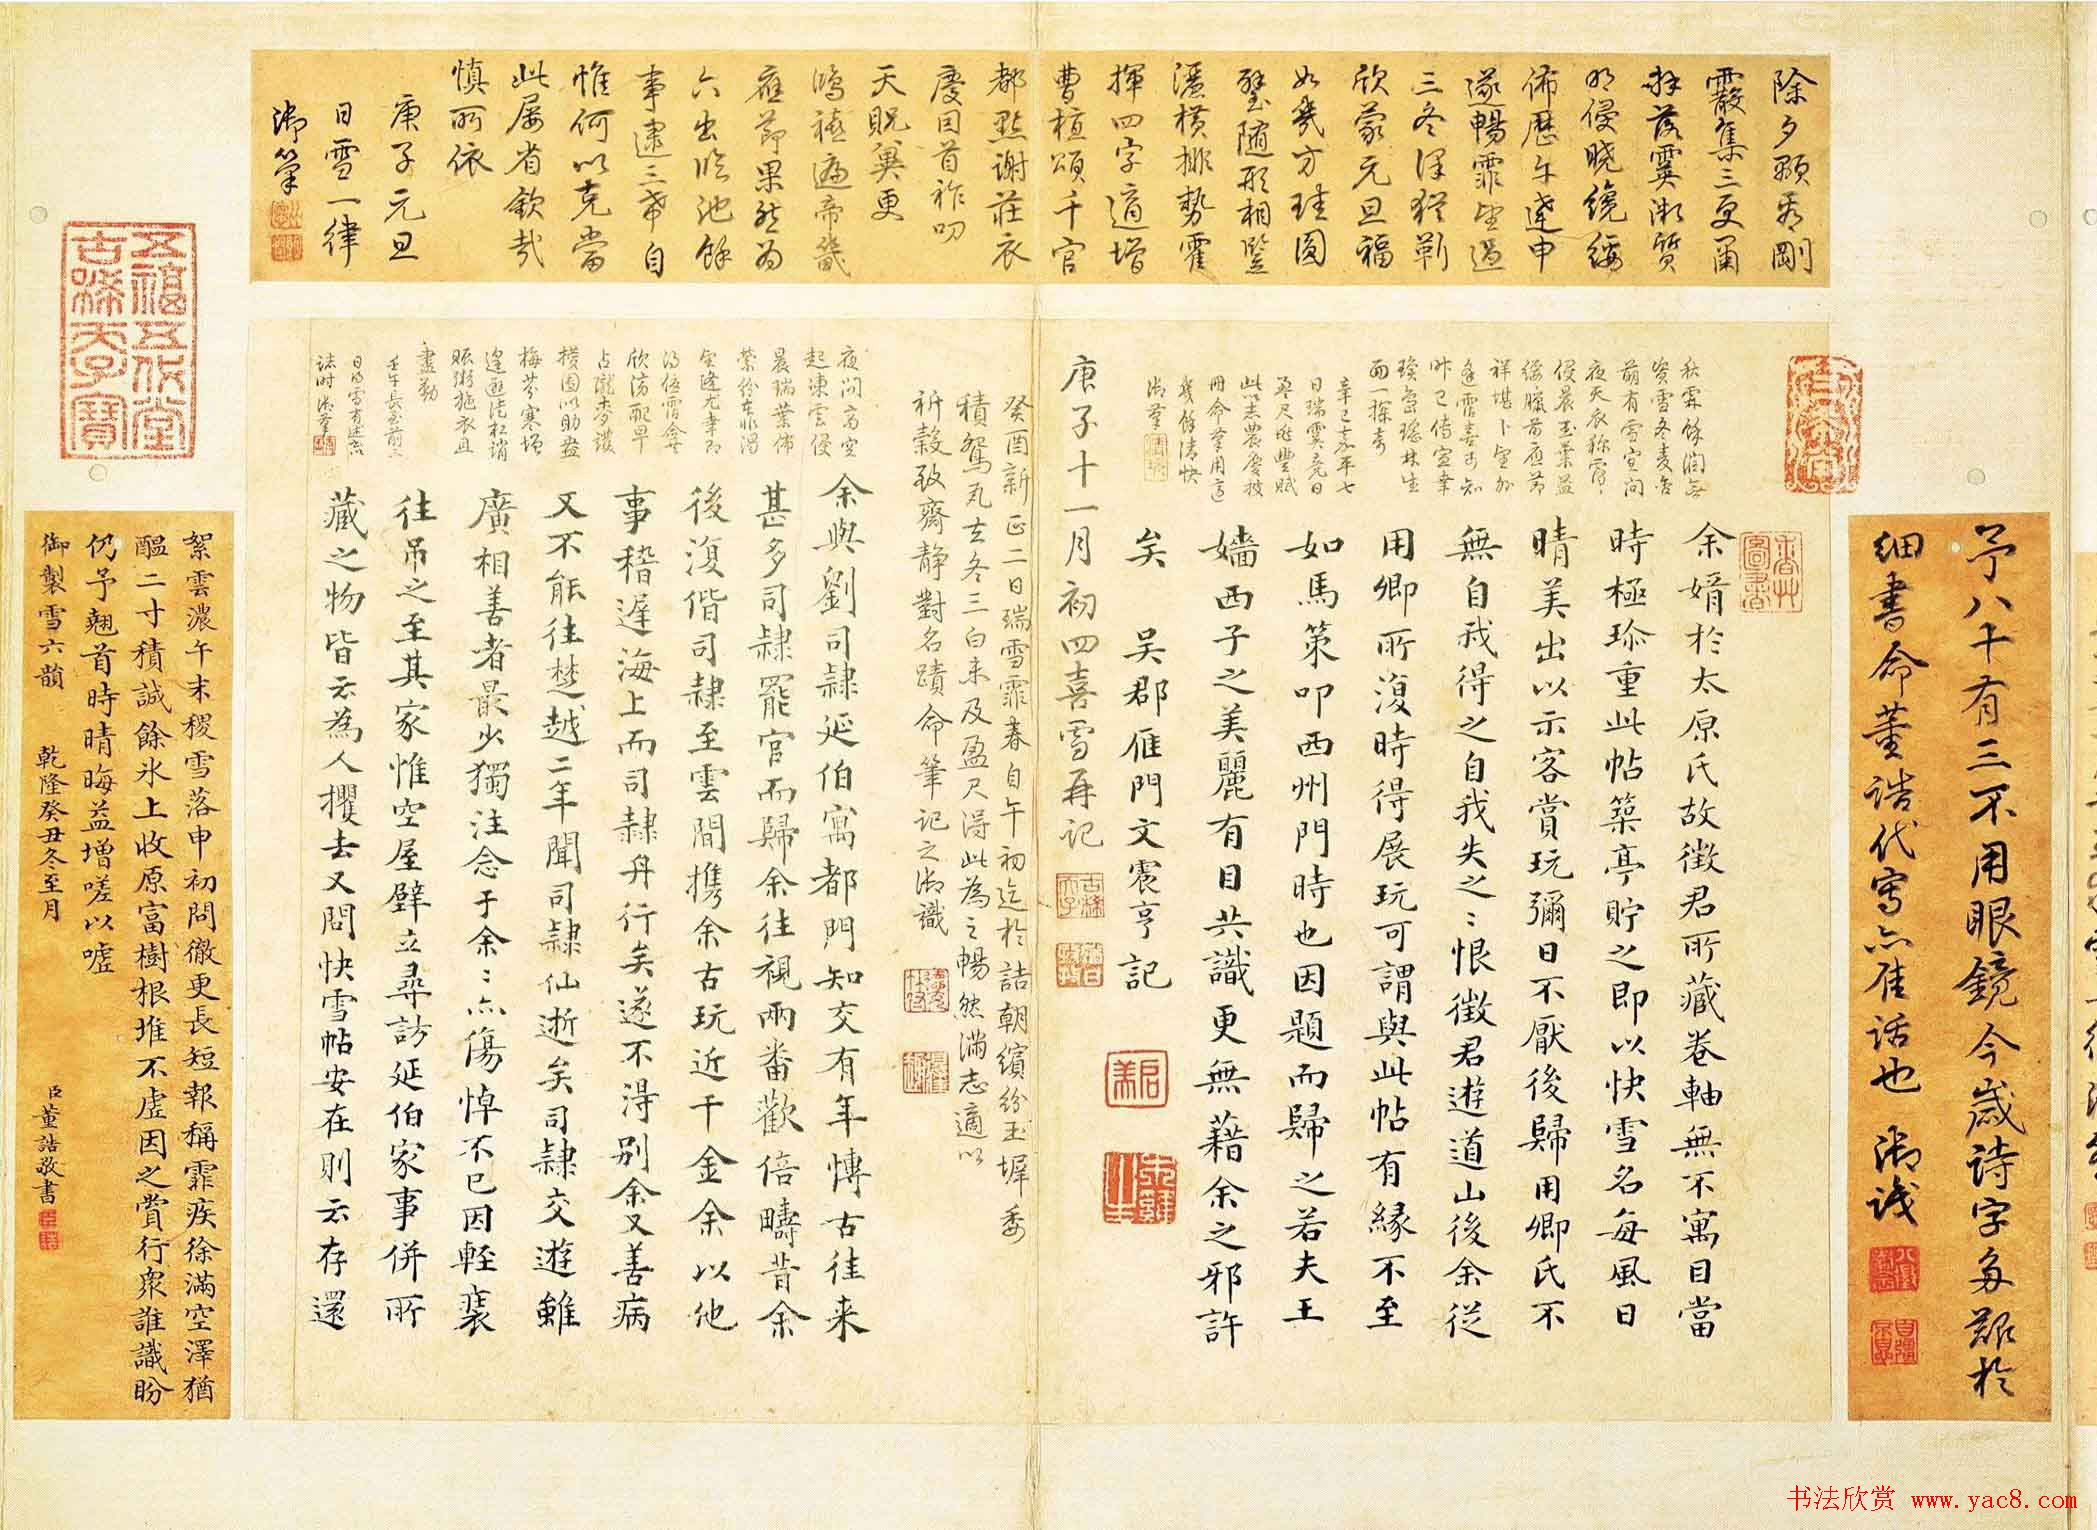 予八十有三不用眼鏡今歲詩字多艱於
細書命董誥代寫亦佳話也 御識
除夕顥看剛
霰集三更闌
落霙漸質
明侵曉繞縷
佈歷午達申
遂暢霏望過
三冬澤猶靳
欣蒙元旦福
如幾方珪圓
璧隨形相豎
潢橫排勢霍
揮四字適增
曹植頌千官
都點謝莊衣
慶因首祚叨
天貺冀更
鴻禧遍帝畿
應節果然為
六出臨池餘
事逮三希自
惟何以克當
此屢省欽哉
慎所依
庚子元旦
日雪一律
御筆
秋霖餘潤無
資雪冬麥含
萌有雪宜問
夜天衣稱
侵晨玉葉益
縷臘前應節
祥堪卜望外
逢霑喜可知
昨已傳宣幸
瓊島瑤林生
面一探奇
辛巳嘉平七
日瑞霙竟日
盈尺兆豐賦
此志農慶披
冊命筆用寫
幾餘清快
御筆
余婿於太原氏故徵君所藏卷軸無不寓目當
時極珍重此帖築亭貯之即以快雪名每風日
晴美出以示客賞玩彌日不厭後歸用卿氏不
無自我得之自我失之之恨徵君遊道山後余從
用卿所復時得展玩可謂與此帖有緣不至
如馬策叩西州門時也因題而歸之若夫王
嬙西子之美麗有目共識更無藉余之邪許
矣 吳郡雁門文震亨記
庚子十一月初四喜雪再記
癸酉新正二日瑞雪霏春自午初迄於詰朝繽紛玉墀委
積鴛瓦去冬三白未及盈尺得此為之暢然滿志適以
祈穀致齋靜對名蹟命筆記之御識
夜間高空
起凍雲侵
晨瑞葉佈
紛霏渴
望隆尤幸即
優霑
欣滂配早
占隴麥護
園以助
梅芬寒增
松消
賑粥施衣且
盡勤
壬午長至前三
日得雪有述志
誌時御筆
余與劉司隸延伯寓都門知交有年博古往来
甚多司隸罷官而歸余往視兩番歡倍疇昔余
後復偕司隸至雲間携余古玩近千金余以他
事稽遲海上而司隸舟行矣遂不得別余又善病
又不能往楚越二年聞司隸仙逝矣司隸交遊雖
廣相善者最少獨注念于余余亦傷悼不已因輕裝
往吊之至其家惟空屋壁立尋訪延伯家事併所
藏之物皆云為人攫去又問快雪帖安在則云存還
五福五代堂
古稀天子寶
絮雲濃午末稷雪落申初問徹更長短報稱霏疾徐滿空澤猶
醞二寸積誠餘氷上收原富樹根堆不虛因之賞行衆誰識盼
仍予翹首時晴晦益增嗟以噓
御製雪六韻 乾隆癸丑冬至月 臣董誥敬書
书法欣赏 www.yac8.com